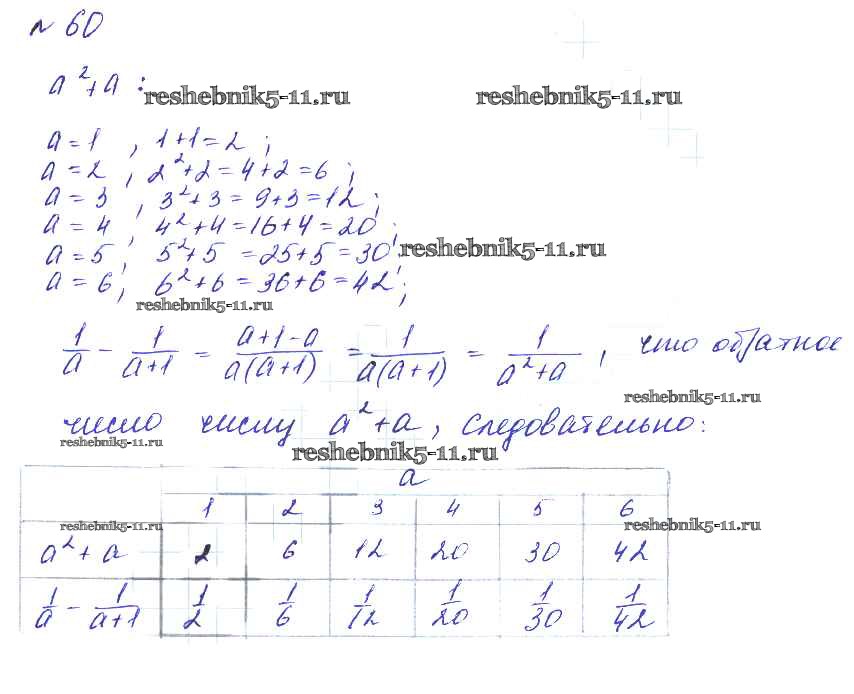 № 60
a²+a : reshebnik5-11.ru reshebnik5-11.ru
a = 1 , 1+1=2 ;
a = 2 , 2²+2=4+2=6 ;
a = 3 , 3²+3=9+3=12 ;
a = 4 , 4²+4=16+4=20 ;
a = 5 , 5²+5=25+5=30 ; reshebnik5-11.ru
a = 6 , 6²+6=36+6=42 ;
reshebnik5-11.ru
1/a - 1/(a+1) = (a+1-a)/(a(a+1)) = 1/(a(a+1)) = 1/(a²+a) , что обратное
reshebnik5-11.ru
число числу a²+a, следовательно:
reshebnik5-11.ru
reshebnik5-11.ru
a
1 2 3 4 5 6
reshebnik5-11.ru reshebnik5-11.ru
a²+a 2 6 12 20 30 42
1/a - 1/(a+1) 1/2 1/6 1/12 1/20 1/30 1/42